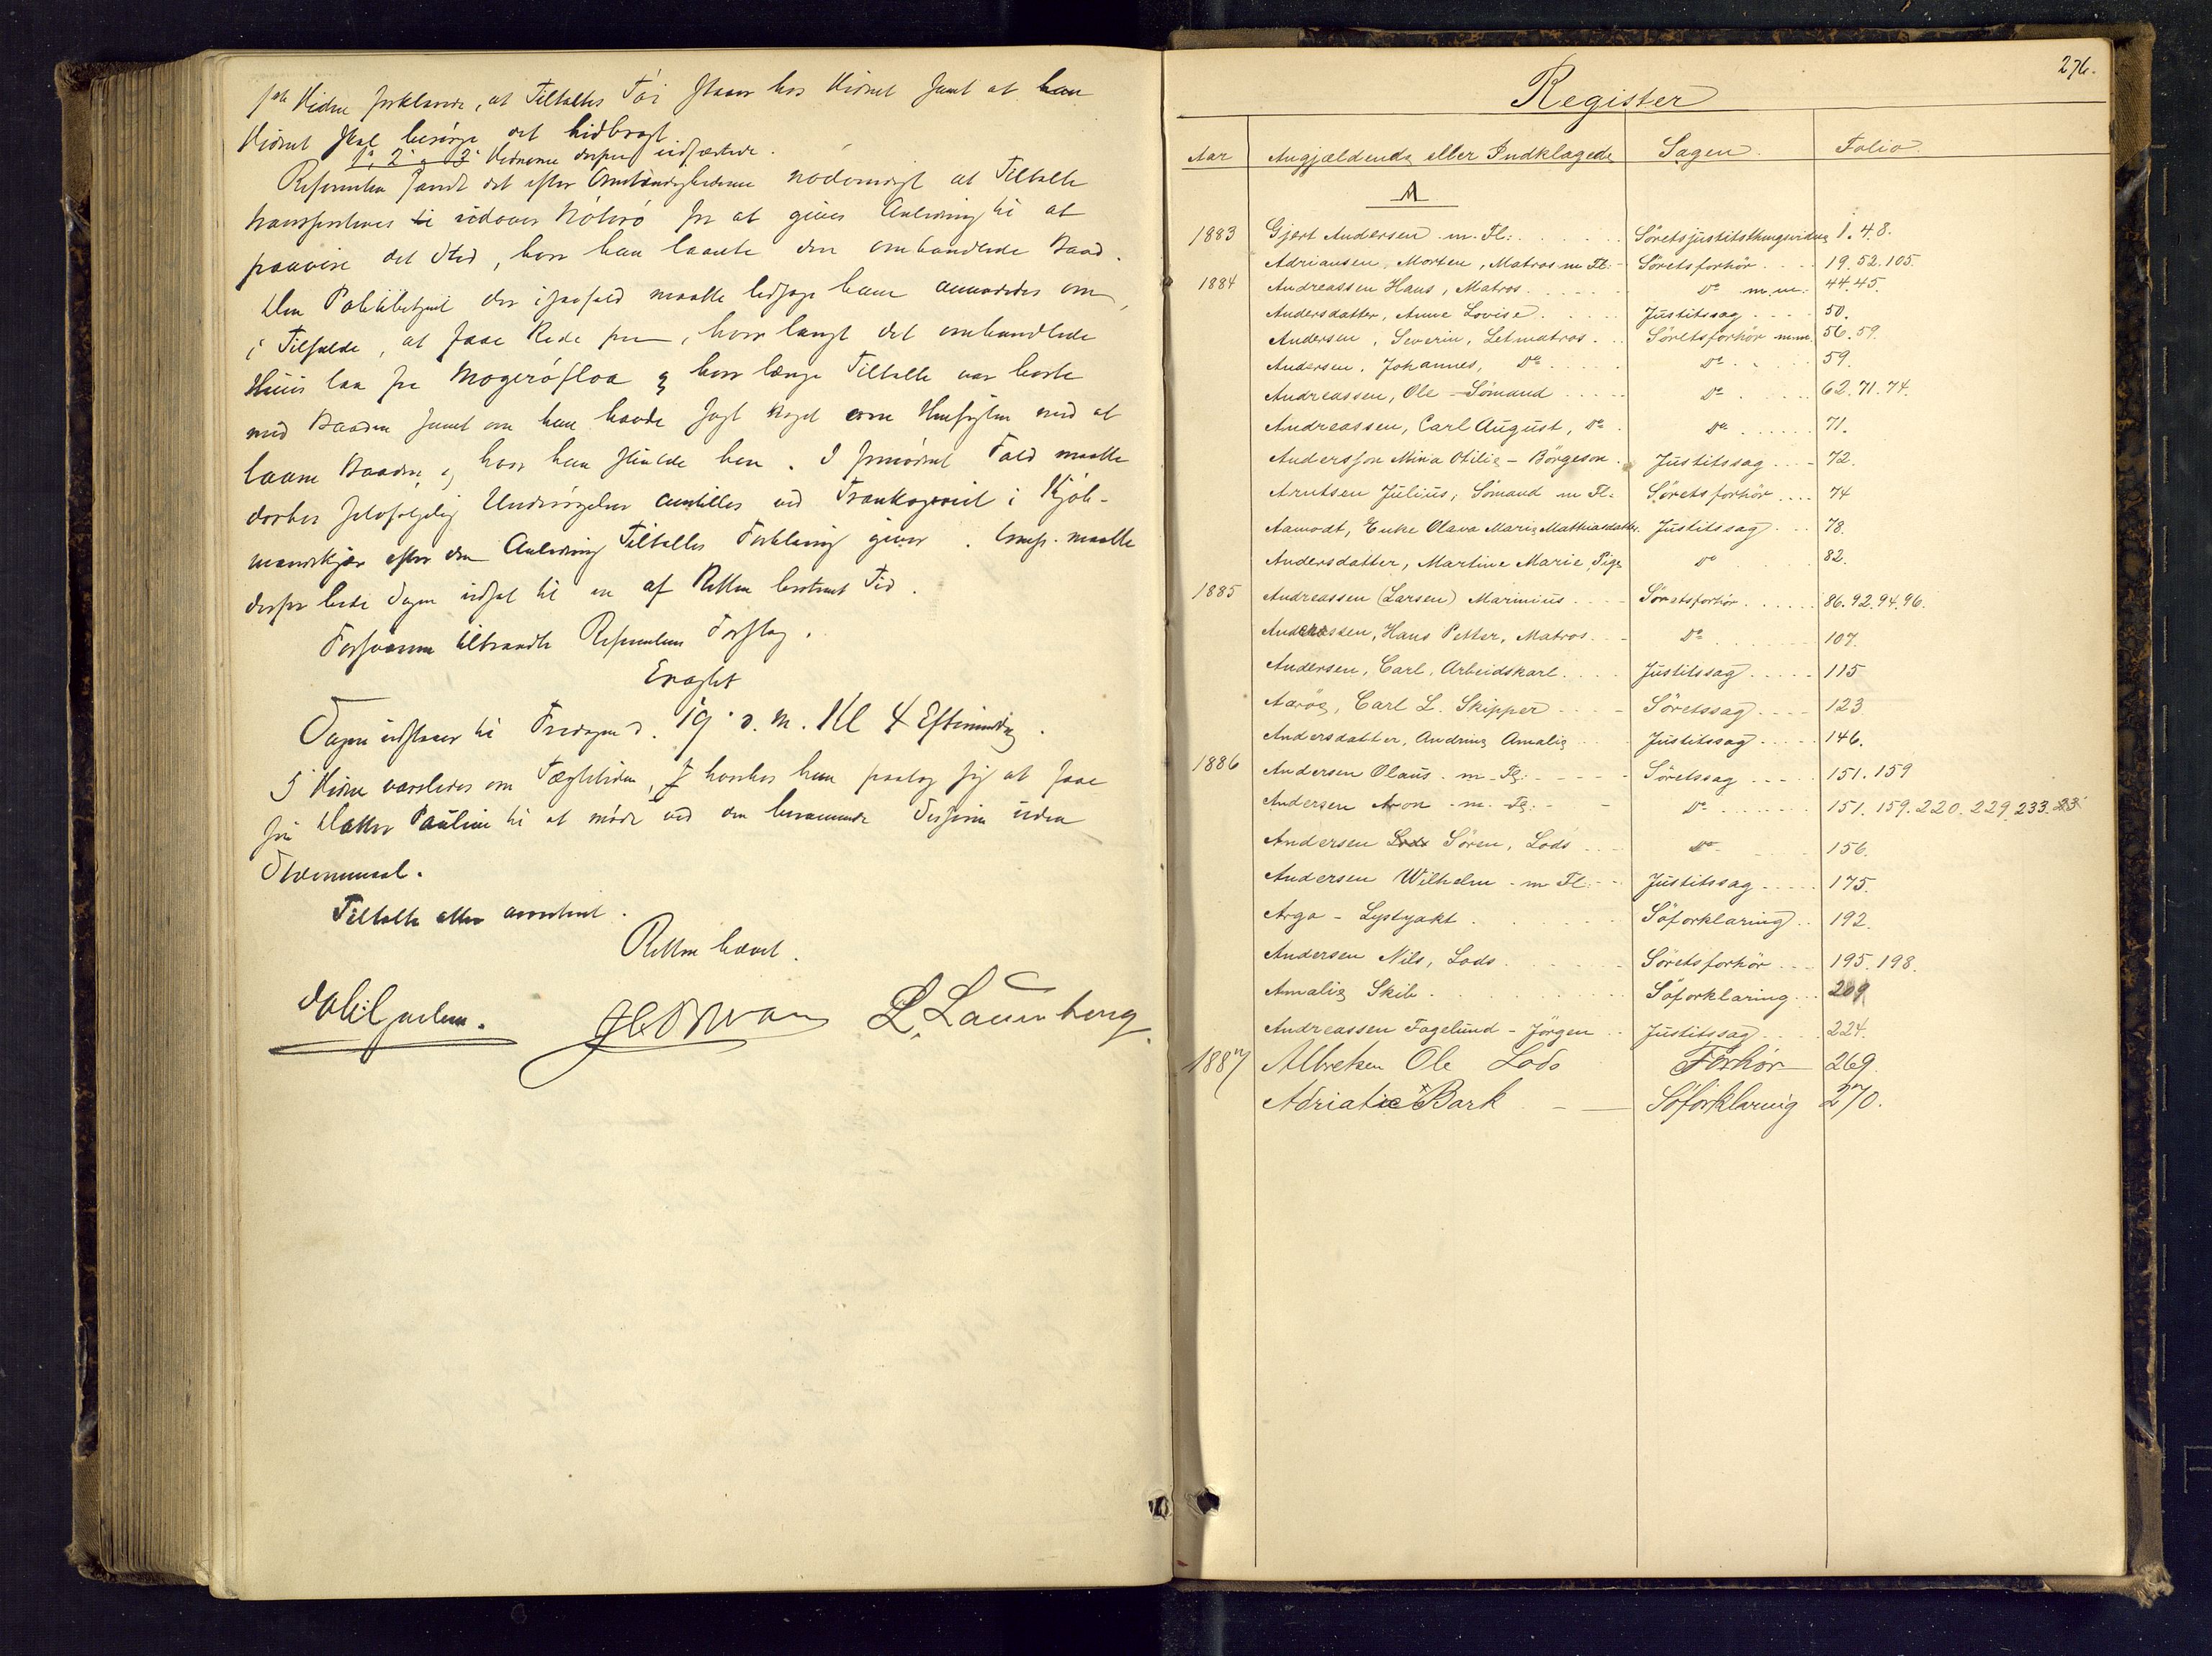 Vidne forklarede, at Tiltaltes Tøi staar hos Vidnet samt at han
Vidnet skal besørge det hidbragt.
1, 2 og 3 Vidnerne derpaa
Referenten fandt det efter Omstændighederne nødvendigt at Tiltalte
transporteres til udover Nøterø for at give Anledning til at
paavise det Sted, hvor han laante den omhandlede Baad.
Den Politibetjent der isaafald maatte ledsage ham anmodedes om
i Tilfælde, at faae Rede paa, hvor langt det omhandlede
Huus laa fra Mogerøfloa og hvor længe Tiltalte var borte
med Baaden samt om han havde sagt noget om Hensigten med at
laane Baaden og hvor han skulde hen. I fornødent Fald maatte
derhos selvfølgelig Undersøgelser anstilles ved i Kjøb-
mandskjær efter den Anledning Tiltaltes Forklaring giver. maatte
derfor bede Sagen udsat til en af Retten bestemt Tid.
Forsvareren tiltraadte Referentens Forslag.
Eragtet
Sagen udstaaer til Fredagen d. 19 d. M. Kl 4 Eftermiddag.
Vidne varsledes om Tægtetiden, hvorhos han paatog sig at faae
sin Datter Pauline til at møde ved den berammede Session uden
Stævnemaal.
Tiltalte atter arresteret.
Retten hævet.
L. Lauenborg.
276.
Register
Aar Angjældende eller Indklagede Sagen. Folio.
A
1883 Gjert Andersen m. Fl. Søretsjustitsthingsvidne 1. 4. 8.
Adriansen, Morten, Matros m Fl. Søretsforhör 19. 52. 105.
1884 Andreassen Hans, Matros Do m.m. 44. 45.
Andersdatter, Anne Lovise Justitssag 50.
Andersen, Severin, Letmatros Søretsforhör m.m. 56. 59.
Andersen, Johannes, Do Do 59.
Andreassen, Ole - Sömand Do 62. 71. 74.
Andreassen, Carl August, Do Do 71.
Andersson Mina Otilie - Börgeson Justitssag 72.
Arntsen Julius, Sömand m Fl. Søretsforhör 74
Aamodt, Enke Olava Marie Mathiasdatter Justitssag 78.
Andersdatter, Martine Marie, Pige Do 82.
1885 Andreassen (Larsen) Marinius Søretsforhör 86. 92. 94. 96.
Andreassen, Hans Petter, Matros Do 107.
Andersen, Carl, Arbeidskarl Justitssag 115
Aaröe, Carl L. Skipper Søretssag 123
Andersdatter, Andrine Amalie Justitssag 146.
1886 Andersen Olaus m. Fl. Søretssag 151. 159
Andersen Aron m. Fl. Do 151. 159. 220. 229. 233.
Andersen Sören, Lods Do 156.
Andersen Wilhelm m Fl. Justitssag 175.
Argo - Lystyakt Söforklaring 192.
Andersen Nils, Lods Søretsforhör 195. 198.
Amalie Skib Söforklaring 209
Andreassen Fagelund - Jörgen Justitssag 224.
1887 Albretsen Ole Lods Forhör 269.
Adriatic Bark Söforklaring 270.